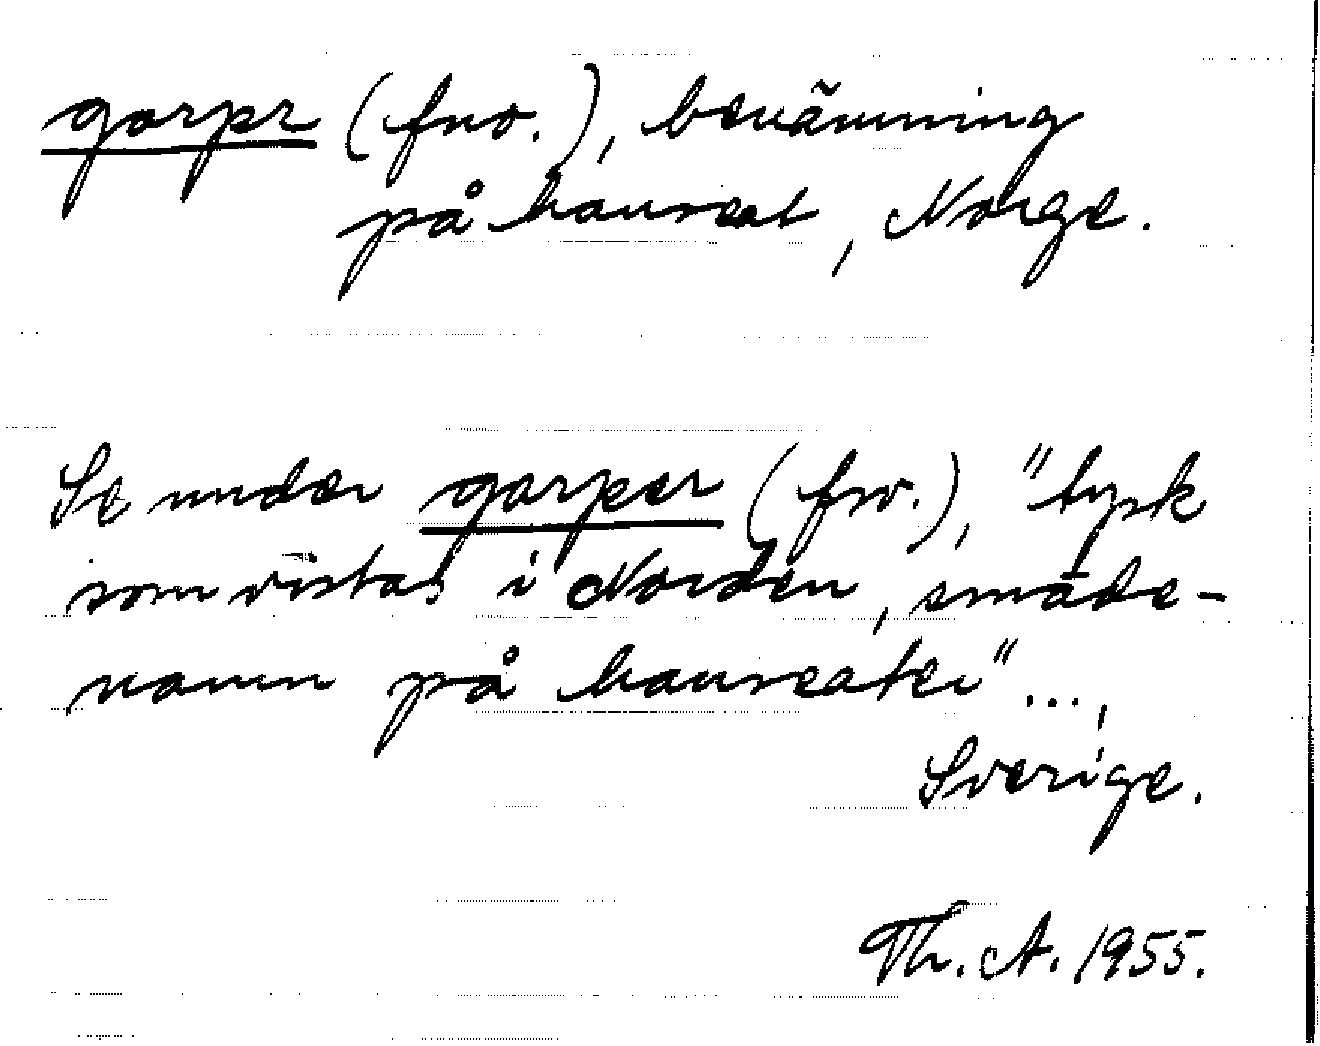 garpr (fno.), benämning
på hanseat, Norge.
Se under garper (fsv.), "tysk
som vistas i Norden, smäde-
namn på hanseater"...,
Sverige.
Th. A. 1955.